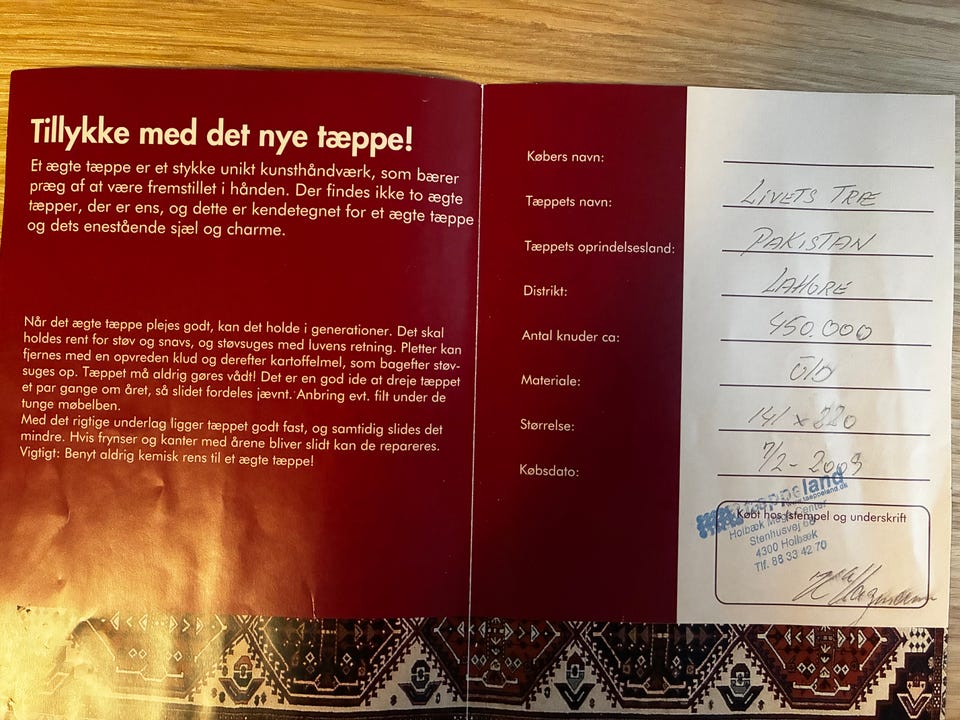 Tillykke med det nye tæppe!
Et ægte tæppe er et stykke unikt kunsthåndværk, som bærer
præg af at være fremstillet i hånden. Der findes ikke to ægte
tæpper, der er ens, og dette er kendetegnet for et ægte tæppe
og dets enestående sjæl og charme.
Når det ægte tæppe plejes godt, kan det holde i generationer. Det skal
holdes rent for støv og snavs, og støvsuges med luvens retning. Pletter kan
fjernes med en opvreden klud og derefter kartoffelmel, som bagefter støv-
suges op. Tæppet må aldrig gøres vådt! Det er en god ide at dreje tæppet
et par gange om året, så slidet fordeles jævnt. Anbring evt. filt under de
tunge møbelben.
Med det rigtige underlag ligger tæppet godt fast, og samtidig slides det
mindre. Hvis frynser og kanter med årene bliver slidt kan de repareres.
Vigtigt: Benyt aldrig kemisk rens til et ægte tæppe!
Købers navn:
Tæppets navn: LIVETS TRÆ
Tæppets oprindelsesland: PAKISTAN
Distrikt: LAHORE
Antal knuder ca: 450.000
Materiale: Uld
Størrelse: 141 x 220
Købsdato: 7/2-2009
tæppeland
www.taeppeland.dk
Købt hos (stempel og underskrift
Holbæk Mega Center
Stenhusvej
4300 Holbæk
Tlf. 88 33 42 70